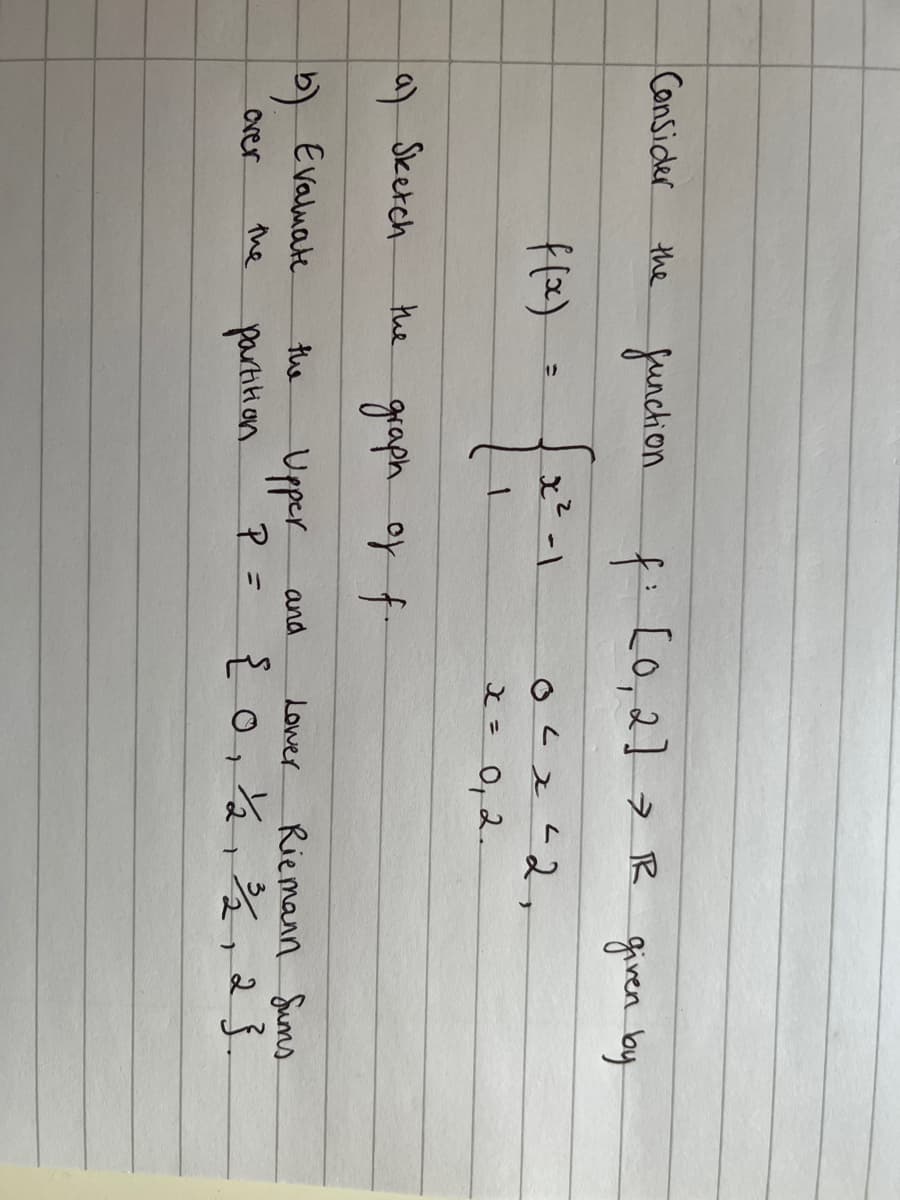 Consider the function f: [0, 2] → ℝ given by
f(x) = { x² - 1   0 < x < 2,
{ 1   x = 0, 2.
a) Sketch the graph of f.
b) Evaluate the Upper and Lower Riemann Sums
over the partition P = { 0, 1/2, 3/2, 2 }.